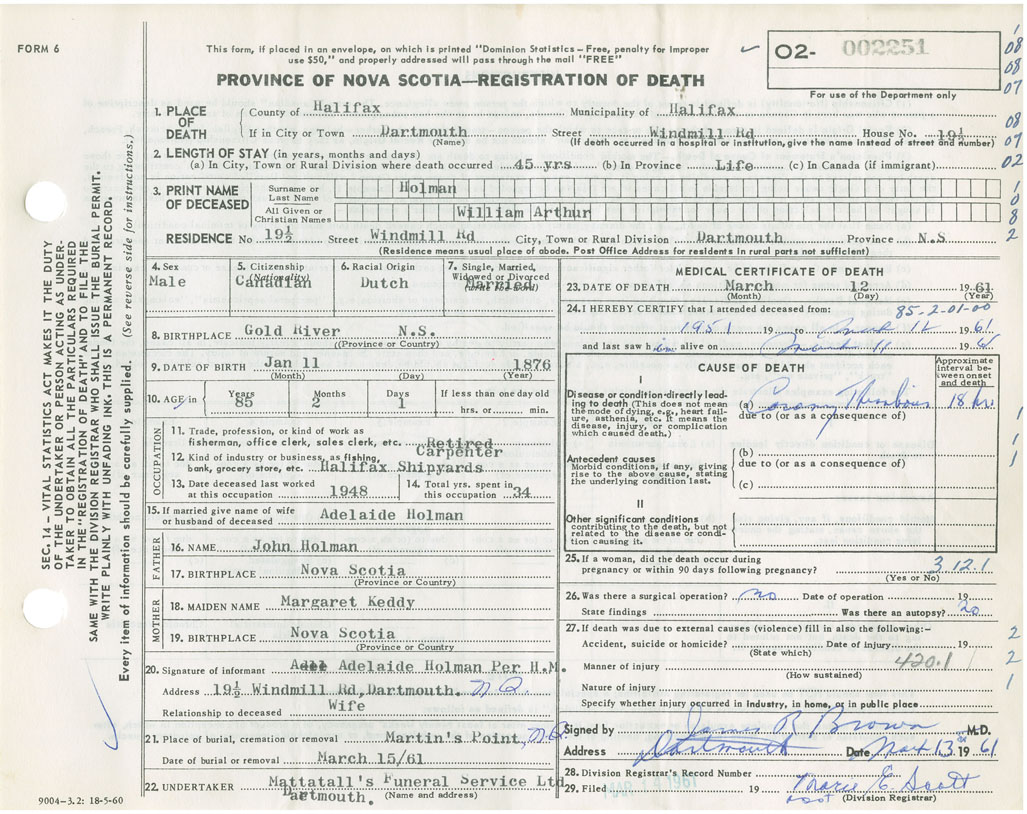 FORM 6
This form, if placed in an envelope, on which is printed "Dominion Statistics – Free, penalty for improper
use $50," and properly addressed will pass through the mail "FREE"
O2- 002251
PROVINCE OF NOVA SCOTIA—REGISTRATION OF DEATH
For use of the Department only
08
08
07
08
07
02
1. PLACE OF DEATH
County of Halifax Municipality of Halifax
If in City or Town Dartmouth Street Windmill Rd House No. 19½
(Name) (If death occurred in a hospital or institution, give the name instead of street and number)
2. LENGTH OF STAY (in years, months and days)
(a) In City, Town or Rural Division where death occurred 45 yrs (b) In Province Life (c) In Canada (if immigrant)
3. PRINT NAME OF DECEASED
Surname or Last Name Holman
All Given or Christian Names William Arthur
RESIDENCE No 19½ Street Windmill Rd City, Town or Rural Division Dartmouth Province N.S
(Residence means usual place of abode. Post Office Address for residents in rural parts not sufficient)
4. Sex
Male
5. Citizenship (Nationality)
Canadian
6. Racial Origin
Dutch
7. Single, Married, Widowed or Divorced
Married
8. BIRTHPLACE Gold River N.S.
(Province or Country)
9. DATE OF BIRTH Jan 11 1876
(Month) (Day) (Year)
10. AGE in Years Months Days If less than one day old
85 2 1 hrs. or min.
OCCUPATION
11. Trade, profession, or kind of work as
fisherman, office clerk, sales clerk, etc. Retired
Carpenter
12. Kind of industry or business, as fishing,
bank, grocery store, etc. Halifax Shipyards
13. Date deceased last worked
at this occupation 1948
14. Total yrs. spent in
this occupation 34
15. If married give name of wife
or husband of deceased Adelaide Holman
FATHER
16. NAME John Holman
17. BIRTHPLACE Nova Scotia
(Province or Country)
MOTHER
18. MAIDEN NAME Margaret Keddy
19. BIRTHPLACE Nova Scotia
(Province or Country
20. Signature of informant Adelaide Holman Per H.M.
Address 19½ Windmill Rd, Dartmouth.
Relationship to deceased Wife
21. Place of burial, cremation or removal Martin's Point,
Date of burial or removal March 15/61
22. UNDERTAKER Mattatall's Funeral Service Ltd
Dartmouth. (Name and address)
MEDICAL CERTIFICATE OF DEATH
23. DATE OF DEATH March 12 19 61
(Month) (Day) (Year)
24. I HEREBY CERTIFY that I attended deceased from: 85-2-01-00
1951 19 to March 12 19 61
and last saw him alive on March 11 19 61
CAUSE OF DEATH
Approximate interval between onset and death
I
Disease or condition directly leading to death (This does not mean the mode of dying, e.g., heart failure, asthenia, etc. It means the disease, injury, or complication which caused death.)
(a) Coronary Thrombosis 18 hrs.
due to (or as a consequence of)
Antecedent causes
Morbid conditions, if any, giving rise to the above cause, stating the underlying condition last.
(b)
due to (or as a consequence of)
(c)
II
Other significant conditions
contributing to the death, but not related to the disease or condition causing it.
25. If a woman, did the death occur during
pregnancy or within 90 days following pregnancy? 3 12.1
(Yes or No)
26. Was there a surgical operation? no Date of operation 19
State findings Was there an autopsy? no
27. If death was due to external causes (violence) fill in also the following:–
Accident, suicide or homicide? Date of injury 19
(State which)
420.1
Manner of injury
(How sustained)
Nature of injury
Specify whether injury occurred in Industry, in home, or in public place
Signed by James R Brown M.D.
Address Dartmouth Date Mar 13 19 61
28. Division Registrar's Record Number
29. Filed 19 Marie E. Scott
(Division Registrar)
SEC. 14 – VITAL STATISTICS ACT MAKES IT THE DUTY
OF THE UNDERTAKER OR PERSON ACTING AS UNDER-
TAKER TO OBTAIN ALL THE PARTICULARS REQUIRED
IN THE "REGISTRATION OF DEATH" AND TO FILE THE
SAME WITH THE DIVISION REGISTRAR WHO SHALL ISSUE THE BURIAL PERMIT.
WRITE PLAINLY WITH UNFADING INK. THIS IS A PERMANENT RECORD.
Every item of information should be carefully supplied. (See reverse side for instructions.)
9004–3.2: 18-5-60